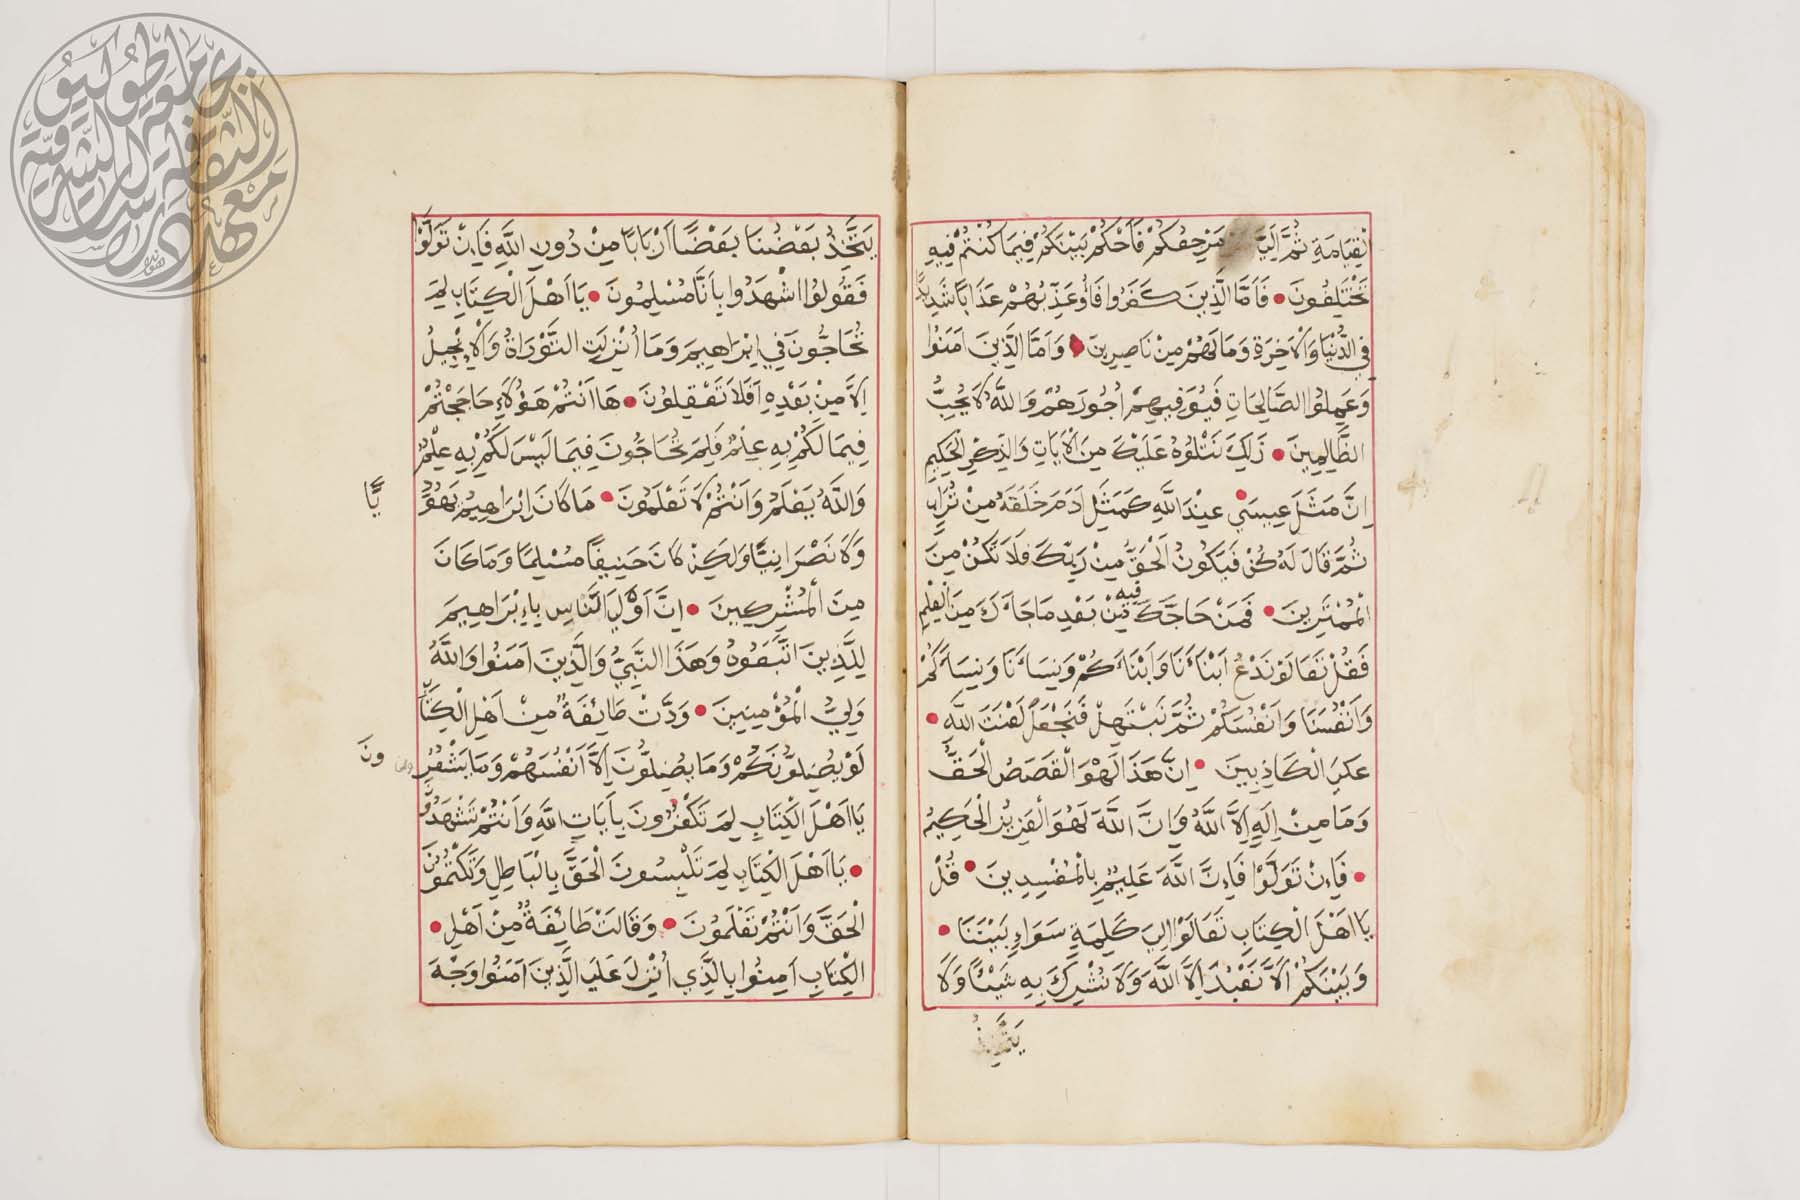 لْقِيَامَةِ ثُمَّ إِلَيَّ مَرْجِعُكُمْ فَأَحْكُمُ بَيْنَكُمْ فِيمَا كُنْتُمْ فِيهِ
تَخْتَلِفُونَ • فَأَمَّا الَّذِينَ كَفَرُوا فَأُعَذِّبُهُمْ عَذَابًا شَدِيدًا
فِي الدُّنْيَا وَالْآخِرَةِ وَمَا لَهُمْ مِنْ نَاصِرِينَ • وَأَمَّا الَّذِينَ آمَنُوا
وَعَمِلُوا الصَّالِحَاتِ فَيُوَفِّيهِمْ أُجُورَهُمْ وَاللَّهُ لَا يُحِبُّ
الظَّالِمِينَ • ذَلِكَ نَتْلُوهُ عَلَيْكَ مِنَ الْآيَاتِ وَالذِّكْرِ الْحَكِيمِ •
إِنَّ مَثَلَ عِيسَى عِنْدَ اللَّهِ كَمَثَلِ آدَمَ خَلَقَهُ مِنْ تُرَابٍ
ثُمَّ قَالَ لَهُ كُنْ فَيَكُونُ الْحَقُّ مِنْ رَبِّكَ فَلَا تَكُنْ مِنَ
الْمُمْتَرِينَ • فَمَنْ حَاجَّكَ فِيهِ مِنْ بَعْدِ مَا جَاءَكَ مِنَ الْعِلْمِ
فَقُلْ تَعَالَوْ نَدْعُ أَبْنَاءَنَا وَأَبْنَاءَكُمْ وَنِسَاءَنَا وَنِسَاءَكُمْ
وَأَنْفُسَنَا وَأَنْفُسَكُمْ ثُمَّ نَبْتَهِلْ فَنَجْعَلْ لَعْنَتَ اللَّهِ •
عَلَى الْكَاذِبِينَ • إِنَّ هَذَا لَهُوَ الْقَصَصُ الْحَقُّ
وَمَا مِنْ إِلَهٍ إِلَّا اللَّهُ وَإِنَّ اللَّهَ لَهُوَ الْعَزِيزُ الْحَكِيمُ
• فَإِنْ تَوَلَّوْا فَإِنَّ اللَّهَ عَلِيمٌ بِالْمُفْسِدِينَ • قُلْ
يَا أَهْلَ الْكِتَابِ تَعَالَوْا إِلَى كَلِمَةٍ سَوَاءٍ بَيْنَنَا •
وَبَيْنَكُمْ أَلَّا نَعْبُدَ إِلَّا اللَّهَ وَلَا نُشْرِكَ بِهِ شَيْئًا وَلَا
يَتَّخِذُ
يَتَّخِذُ بَعْضُنَا بَعْضًا أَرْبَابًا مِنْ دُونِ اللَّهِ فَإِنْ تَوَلَّوْا
فَقُولُوا اشْهَدُوا بِأَنَّا مُسْلِمُونَ • يَا أَهْلَ الْكِتَابِ لِمَ
تُحَاجُّونَ فِي إِبْرَاهِيمَ وَمَا أُنْزِلَتِ التَّوْرَاةُ وَالْإِنْجِيلُ
إِلَّا مِنْ بَعْدِهِ أَفَلَا تَعْقِلُونَ • هَا أَنْتُمْ هَؤُلَاءِ حَاجَجْتُمْ
فِيمَا لَكُمْ بِهِ عِلْمٌ فَلِمَ تُحَاجُّونَ فِيمَا لَيْسَ لَكُمْ بِهِ عِلْمٌ
وَاللَّهُ يَعْلَمُ وَأَنْتُمْ لَا تَعْلَمُونَ • مَا كَانَ إِبْرَاهِيمُ يَهُودِ
يًّا
وَلَا نَصْرَانِيًّا وَلَكِنْ كَانَ حَنِيفًا مُسْلِمًا وَمَا كَانَ
مِنَ الْمُشْرِكِينَ • إِنَّ أَوْلَى النَّاسِ بِإِبْرَاهِيمَ
لِلَّذِينَ اتَّبَعُوهُ وَهَذَا النَّبِيُّ وَالَّذِينَ آمَنُوا وَاللَّهُ
وَلِيُّ الْمُؤْمِنِينَ • وَدَّتْ طَائِفَةٌ مِنْ أَهْلِ الْكِتَابِ
لَوْ يُضِلُّونَكُمْ وَمَا يُضِلُّونَ إِلَّا أَنْفُسَهُمْ وَمَا يَشْعُرُ
ونَ
يَا أَهْلَ الْكِتَابِ لِمَ تَكْفُرُونَ بِآيَاتِ اللَّهِ وَأَنْتُمْ تَشْهَدُونَ
• يَا أَهْلَ الْكِتَابِ لِمَ تَلْبِسُونَ الْحَقَّ بِالْبَاطِلِ وَتَكْتُمُونَ
الْحَقَّ وَأَنْتُمْ تَعْلَمُونَ • وَقَالَتْ طَائِفَةٌ مِنْ أَهْلِ •
الْكِتَابِ آمِنُوا بِالَّذِي أُنْزِلَ عَلَى الَّذِينَ آمَنُوا وَجْهَ